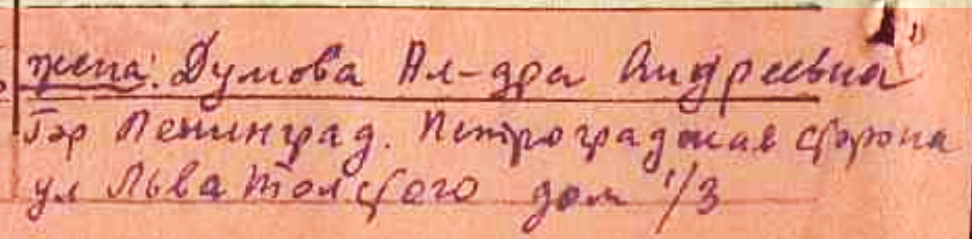 жена: Думова Ал-дра Андреевна
Гор Ленинград. Петроградская сторона
ул Льва Толстого дом 1/3